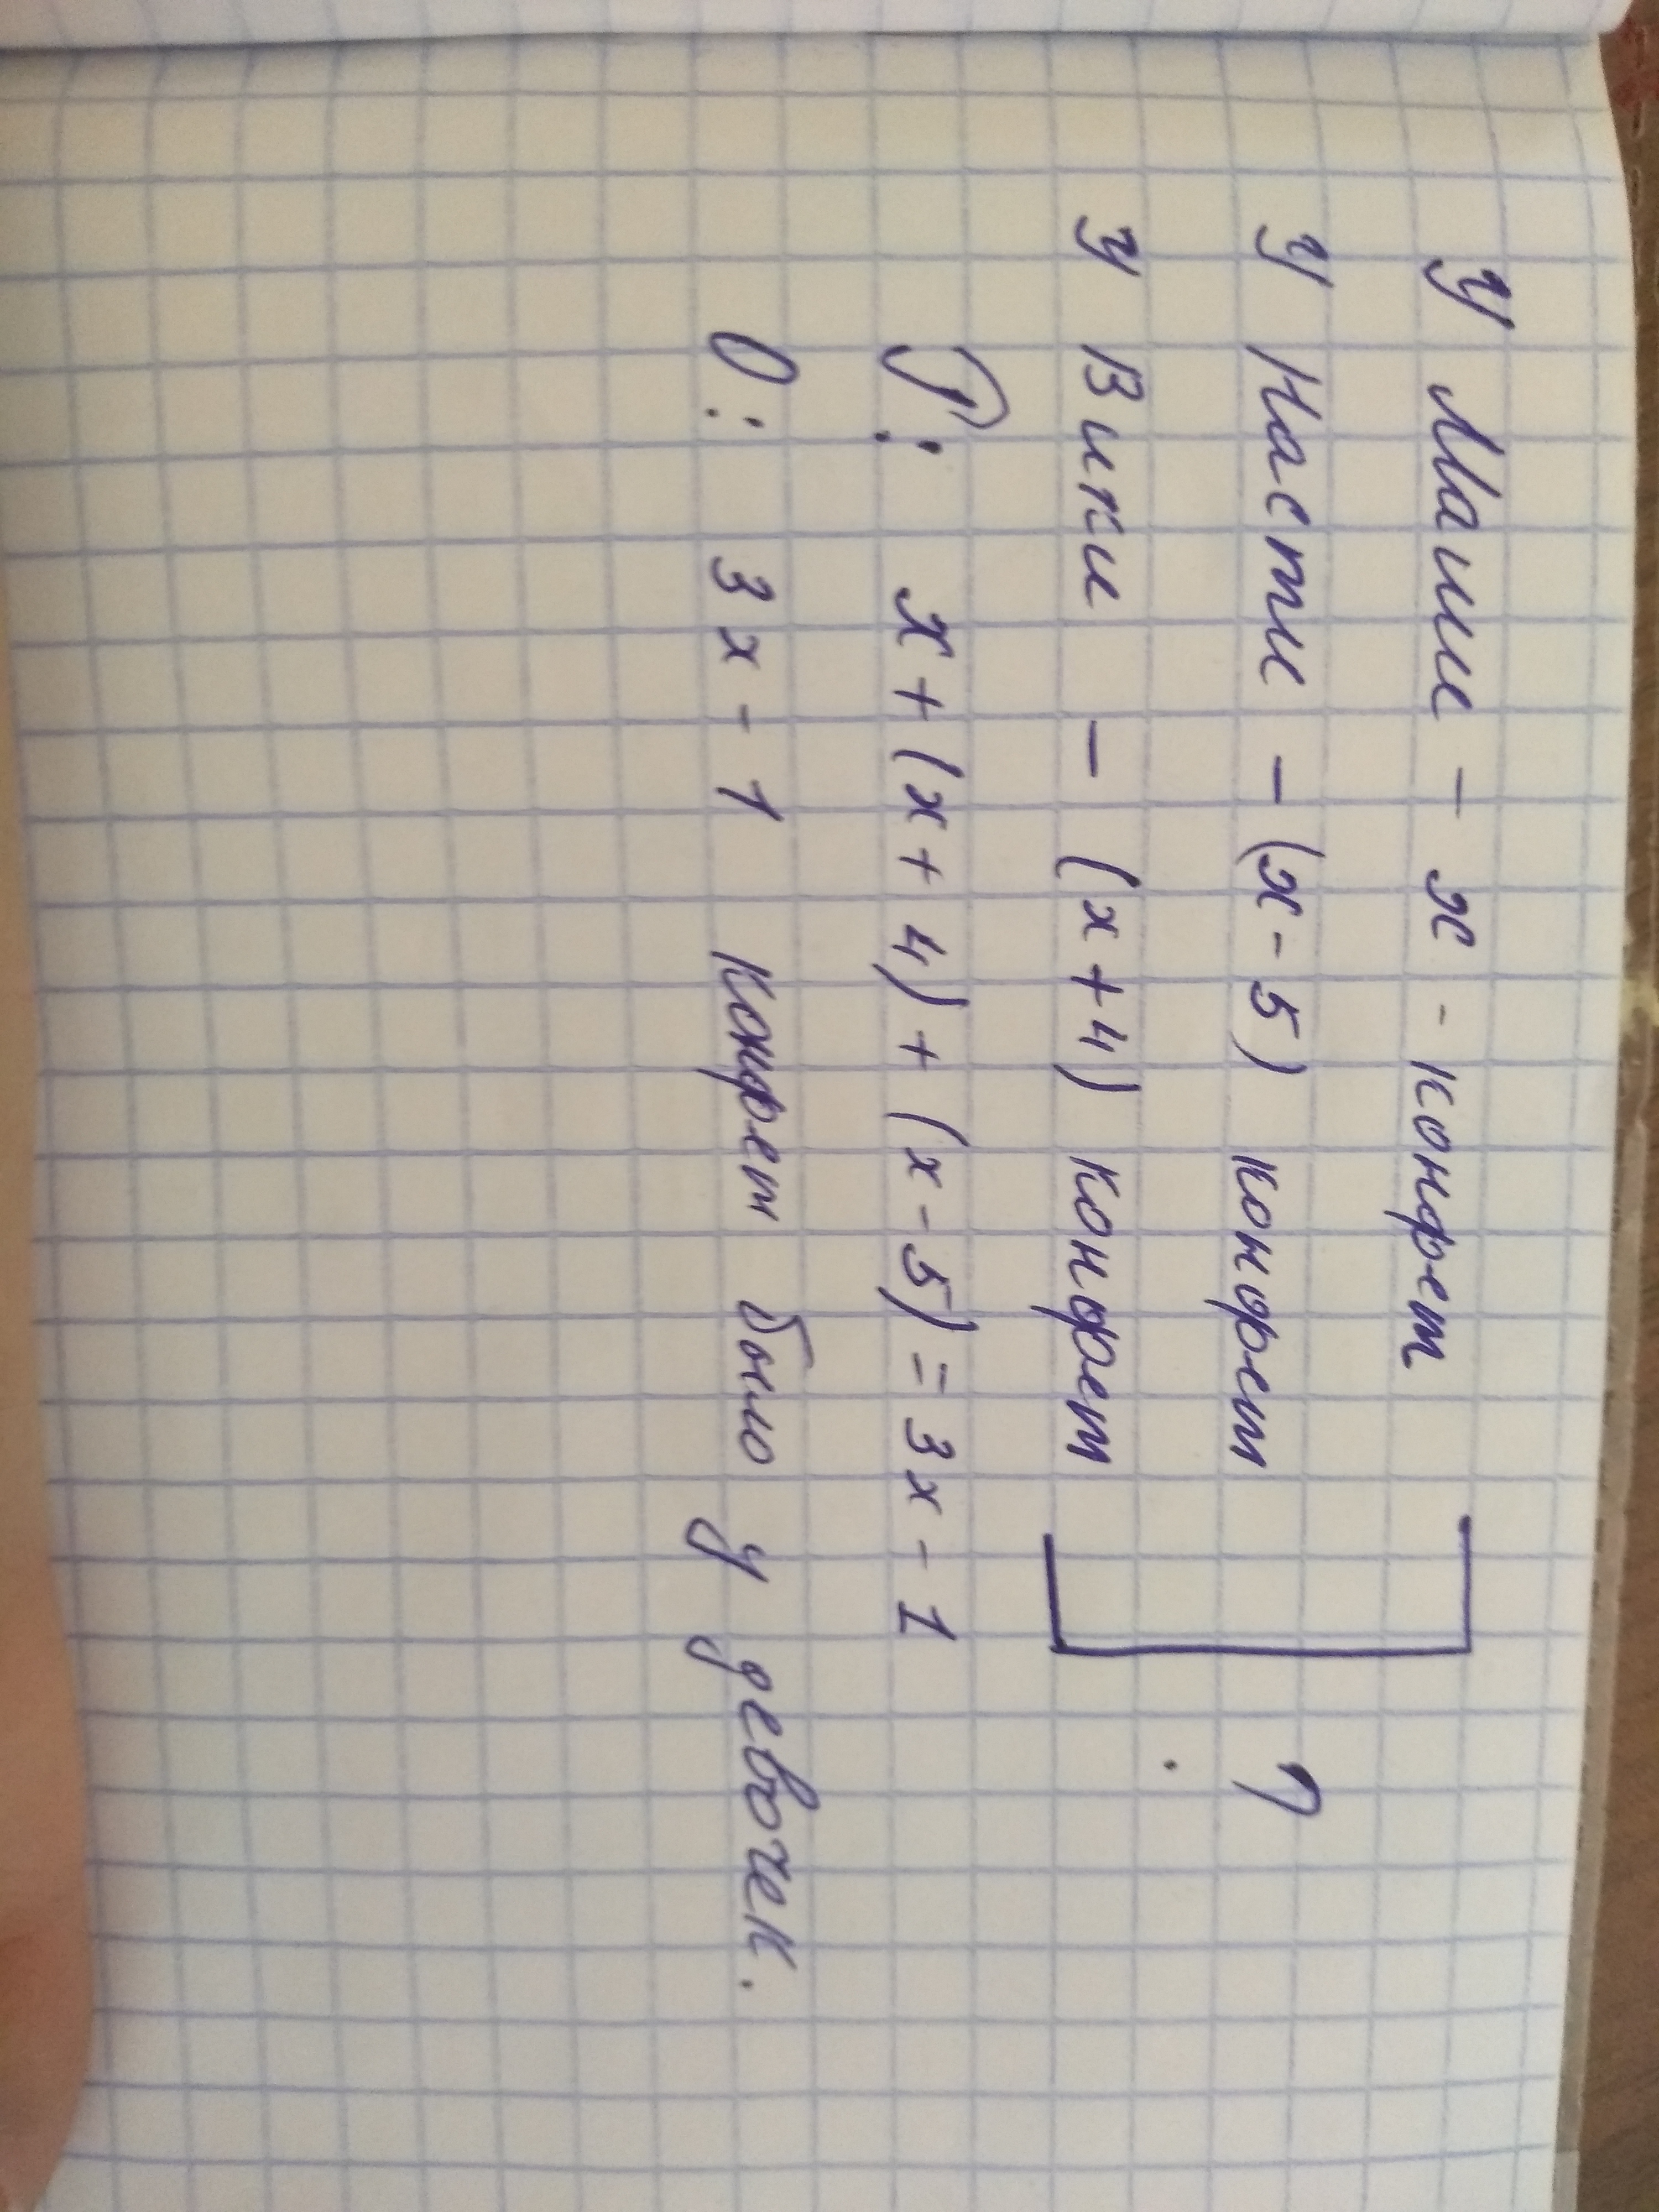 У Маши - x - конфет
У Насти - (x - 5) конфет
У Вики - (x + 4) конфет ?
Р: x + (x + 4) + (x - 5) = 3x - 1
О: 3x - 1 конфет было у девочек.